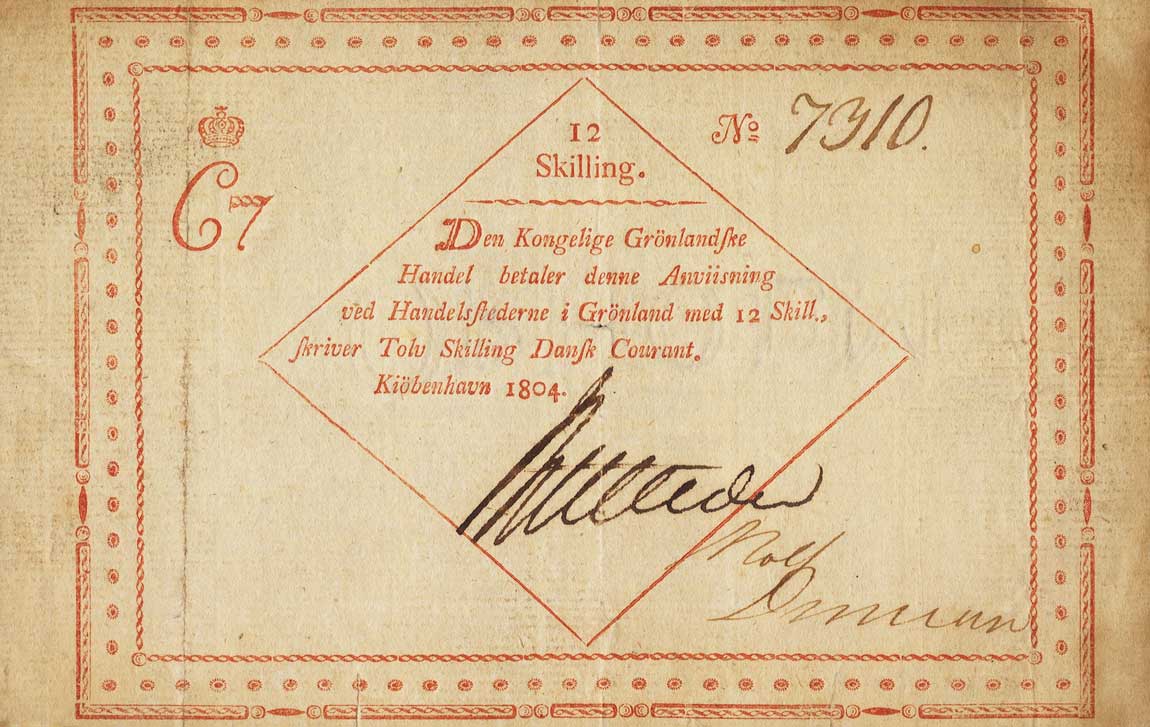 12
Skilling.
No 7310.
C7
Den Kongelige Grönlandſke
Handel betaler denne Anviisning
ved Handelsſtederne i Grönland med 12 Skill.,
ſkriver Tolv Skilling Danſk Courant.
Kiöbenhavn 1804.